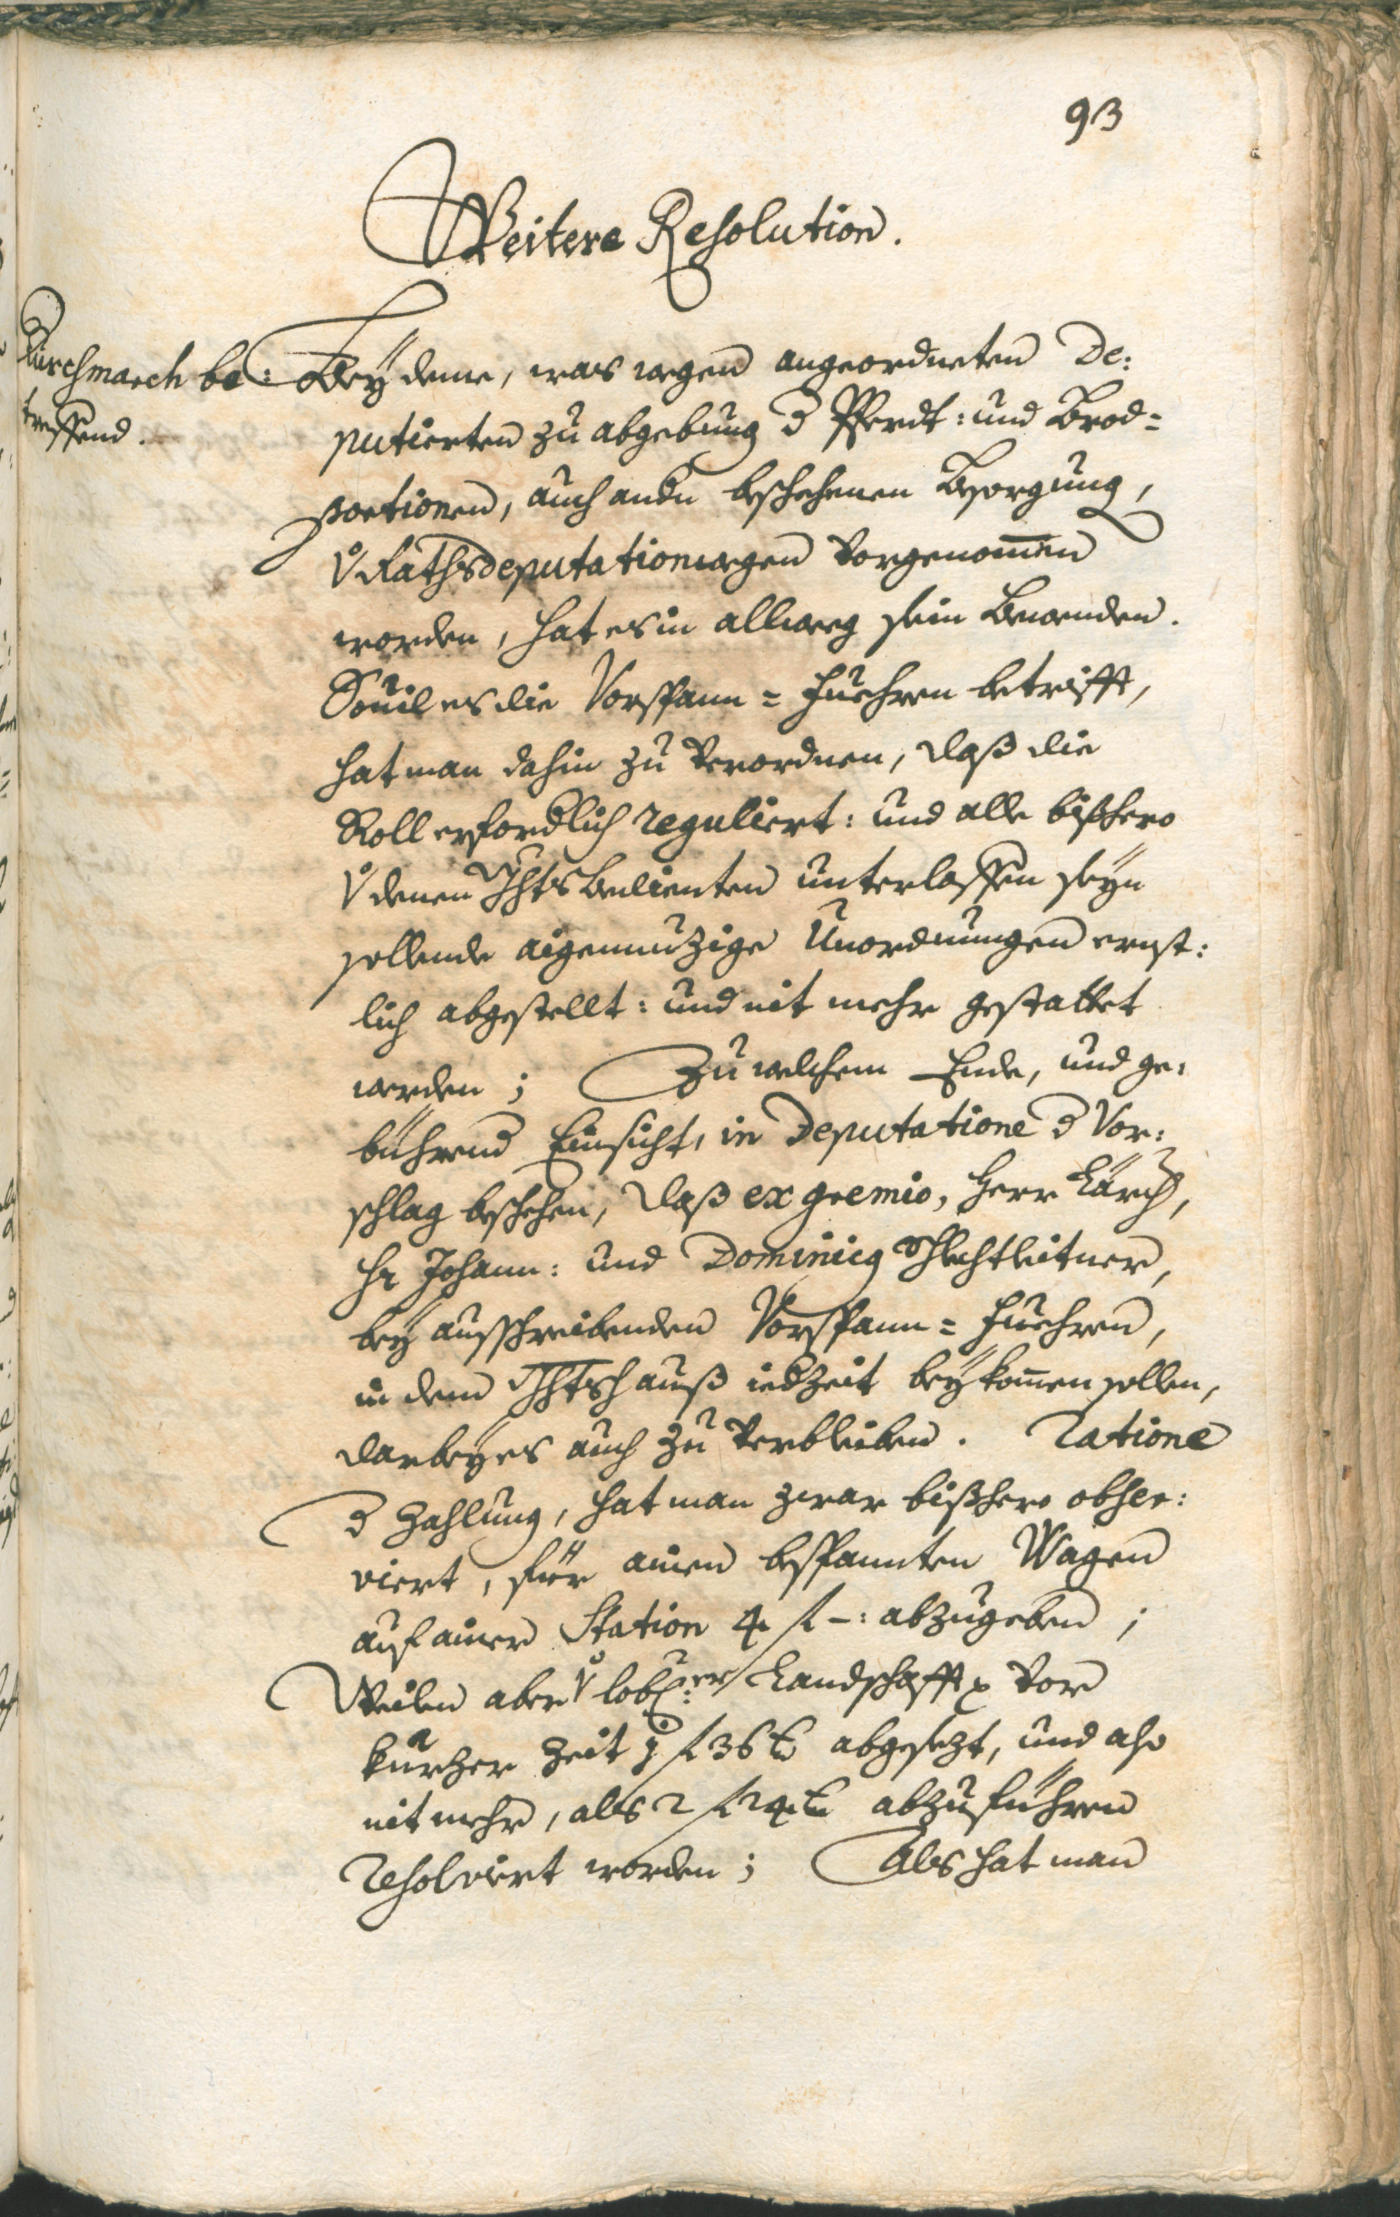 93
Weitere Resolution.
Durchmarch be:
treffend.
Bey deme, was wegen angeordneten De:
putierten zu abgebung d Pferdt: und Brod=
portionen, auch andn beschehenen Besorgung,
v Rathsdeputationwegen vorgenomen
worden, hat es in allweg sein Bewenden.
Souil es die Vorspann= Fuehren betrifft,
hat man dahin zu verordnen, daß die
Roll erfordlich reguliert: und alle bißhero
v denen Ghtsbedienten unterlassen seyn
sollende aigennuzige Unordnungen ernst:
lich abgestellt: und nit mehr gestattet
werden; Zu welchem Ende, und ge:
bührend Einsicht, in Deputatione d Vor:
schlag beschehen, daß ex gremio, Herr Lärch,
Hr Johann: und Dominicg Schlechtleitner,
bey ausschreibenden Vorspann= Fuehren,
in dem Ghtshauß iedzeit beykomen sollen,
darbey es auch zu verbleiben. Ratione
d Zahlung, hat man zwar bißhero obser:
viert, für ainen bespannten Wagen
auf ainer Station 4 f –: abzugeben;
Weilen aber v lobl:er Landschafft vor
kurzer Zeit j f 36 x abgesezt, und also
nit mehr, als 2 f 24 x abzuführen
resolviert worden; Als hat man